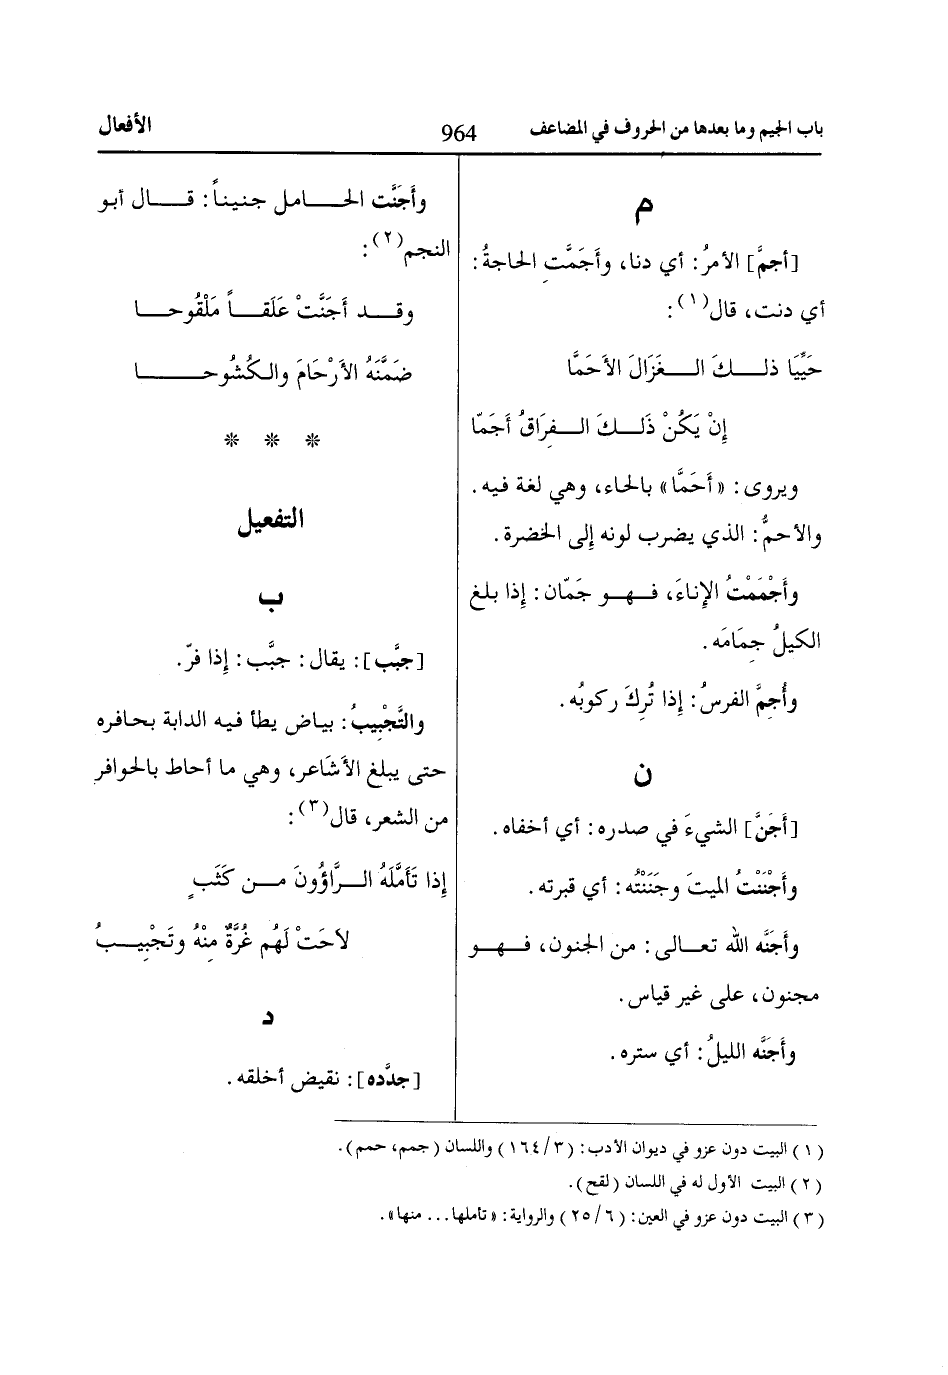 باب الجيم وما بعدها من الحروف في المضاعف 964 الأفعال
م
[أجمَّ] الأمرُ: أي دنا، وأَجَمَّتِ الحاجةُ:
أي دنت، قال(١):
حَيِّيَا ذلـــكَ الـــغَزَالَ الأَحَمَّا
إِنْ يَكُنْ ذَلـــكَ الـــفِرَاقُ أَجَمّا
ويروى: «أَحَمَّا» بالحاء، وهي لغة فيه.
والأحمُّ: الذي يضرب لونه إلى الخضرة.
وأَجْمَمْتُ الإِناءَ، فـــهـــو جَمّان: إِذا بلغ
الكيلُ جِمَامَه.
وأُجِمَّ الفرسُ: إِذا تُرِكَ ركوبُه.
ن
[أَجَنَّ] الشيءَ في صدره: أي أخفاه.
وأَجْنَنْتُ الميتَ وجَنَنْتُه: أي قبرته.
وأَجَنَّه الله تعـــالى: من الجنون، فـــهـــو
مجنون، على غير قياس.
وأَجَنَّه الليلُ: أي ستره.
وأَجَنَّت الحـــامل جنيناً: قـــال أبو
النجم(٢):
وقـــد أَجَنَّتْ عَلَقـــاً مَلْقُوحـــا
ضَمَّنَهُ الأَرْحَامَ والكُشُوحـــا
* * *
التفعيل
ب
[جبَّب]: يقال: جبَّب: إِذا فرّ.
والتَّجْبِيبُ: بياض يطأ فيه الدابة بحافره
حتى يبلغ الأشَاعر، وهي ما أحاط بالحوافر
من الشعر، قال(٣):
إِذا تَأَمَّلَهُ الـــرَّاؤُونَ مـــن كَثَبٍ
لاحَتْ لَهُم غُرَّةٌ مِنْهُ وتَجْبِيـــبُ
د
[جدَّده]: نقيض أخلقه.
(١) البيت دون عزو في ديوان الأدب: (٣/١٦٤) واللسان (جمم، حمم).
(٢) البيت الأول له في اللسان (لقح).
(٣) البيت دون عزو في العين: (٦/٢٥) والرواية: «تاملها... منها».